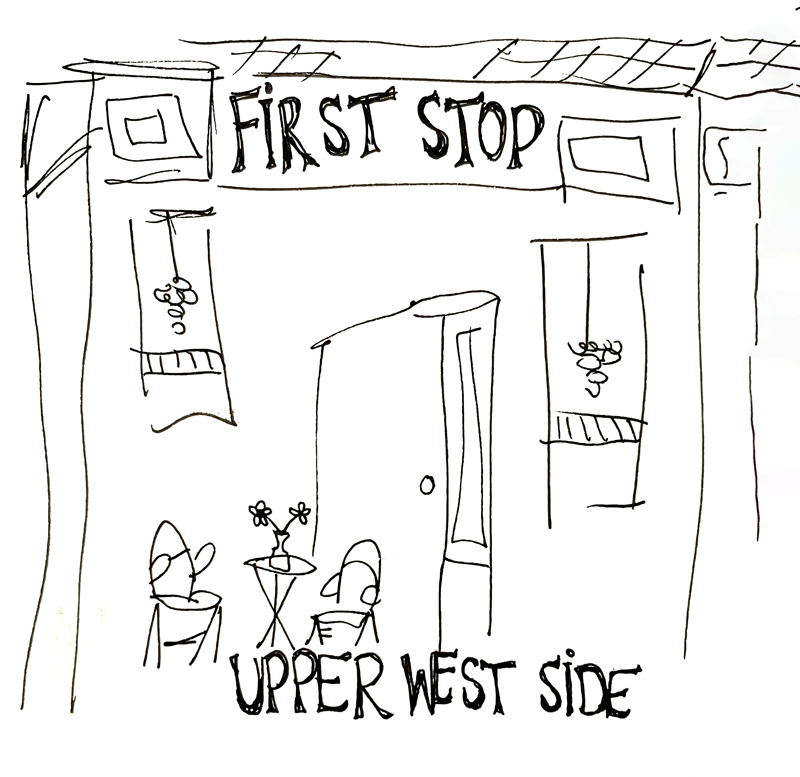 FiRST STOP
UPPER WEST SiDE